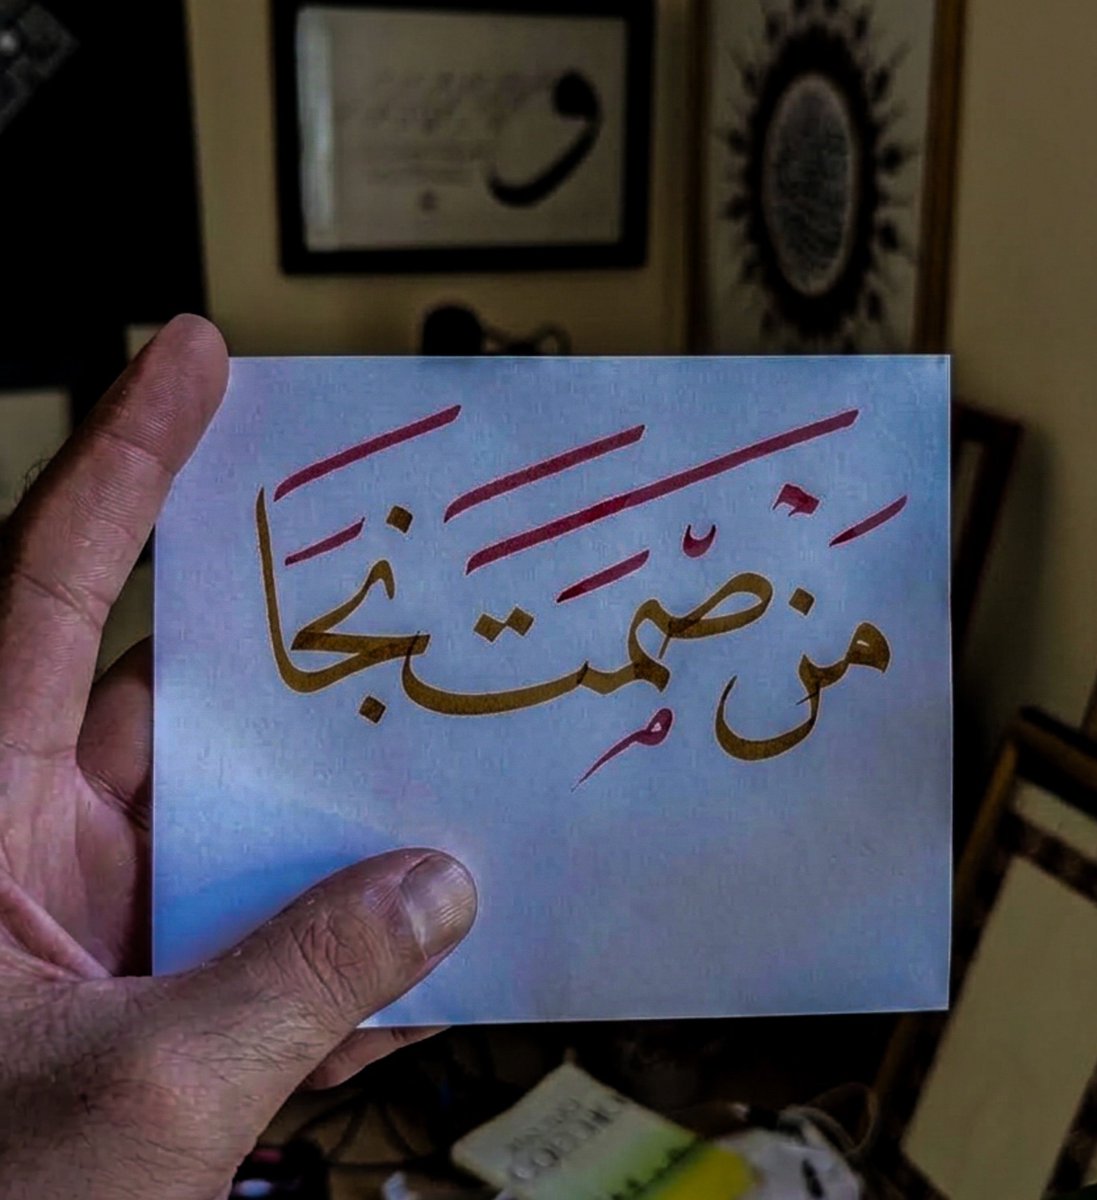 و
مَنْ صَمَتَ نَجَا